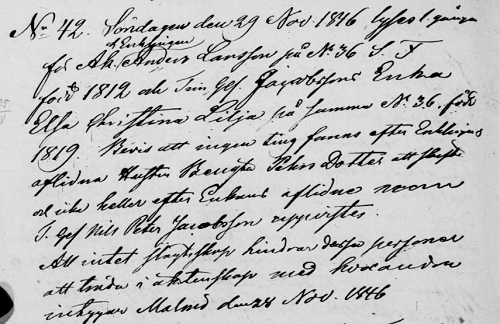 No 42. Söndagen den 29 Nov. 1846 lyses 1. gången
Enklingen
för Åk. Anders Larsson på No. 36 S. F
född 1812 och Gef. Jacobssons Enka
Elsa Christina Lilja på samma No. 36, född
1819. Bevis att ingen ting fanns efter Enklingens
aflidna Hustru Bengta Pehrs Dotter att skifta
och icke heller efter Enkans aflidne man
T. Gef Nils Peter Jacobsson uppvistes.
Att intet skyldskap hindrar dessa personer
att träda i äktenskap med hvarandra
intygar Malmö den 28 Nov. 1846